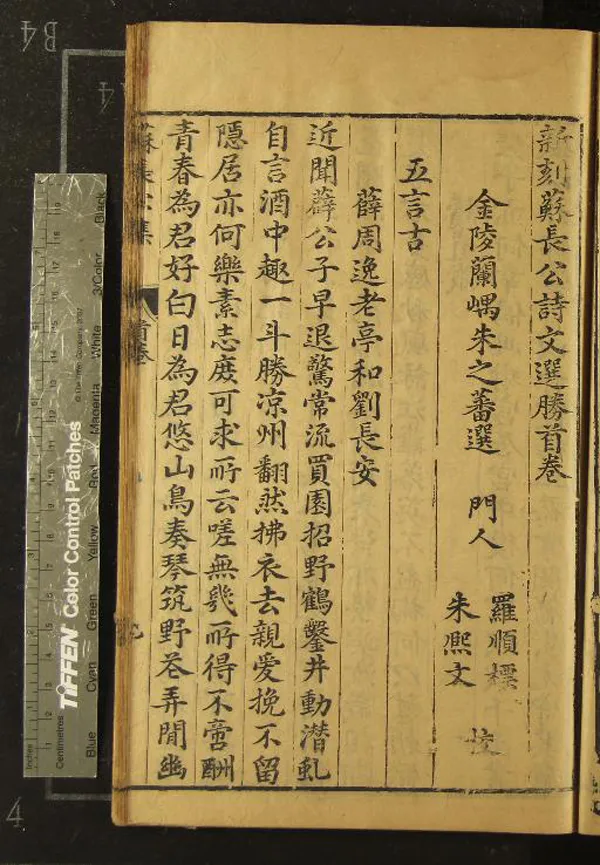 新刻蘇長公詩文選勝首卷
金陵蘭嵎朱之蕃選 門人
羅順標
朱熈文
五言古
薛周逸老亭和劉長安
近聞薛公子早退驚常流買園招野鶴鑿井動潛虬
自言酒中趣一斗勝凉州翻然拂衣去親愛挽不留
隱居亦何樂素志庶可求所云嗟無幾所得不啻酬
青春為君好白日為君悠山鳥奏琴筑野花弄閒幽
首卷
B4
A4
4
TIFFEN Color Control Patches
© The Tiffen Company, 2007
Inches
Centimetres
Blue Cyan Green Yellow Red Magenta White 3/Color Black